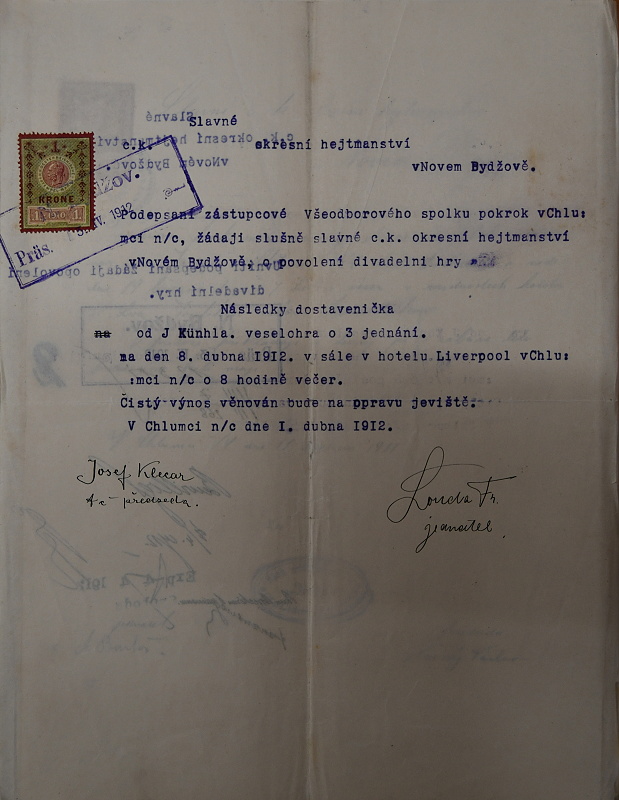 Slavné
c.k. okresní hejtmanství
vNovem Bydžově.
KRONE
Präs. IV. 1912
Podepsaní zástupcové Všeodborového spolku pokrok vChlu:
mci n/c, žádají slušně slavné c.k. okresní hejtmanství
vNovém Bydžově, o povolení divadelní hry
Následky dostaveníčka
na od J Künhla. veselohra o 3 jednání.
na den 8. dubna 1912. v sále v hotelu Liverpool vChlu:
:mci n/c o 8 hodině večer.
Čistý výnos věnován bude na ppravu jeviště.
V Chlumci n/c dne I. dubna 1912.
Josef Klicar
předseda.
Louda Fr.
jednatel.